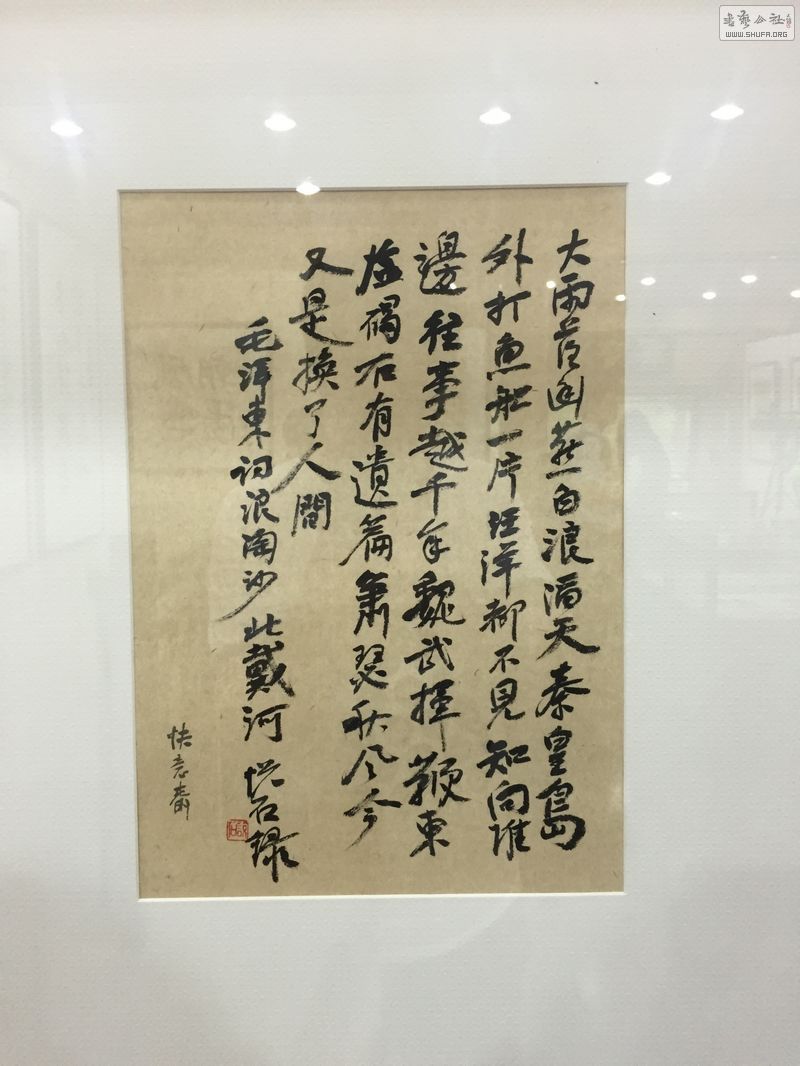 大雨落幽燕白浪滔天秦皇島
外打魚船一片汪洋都不見知向誰
邊往事越千年魏武揮鞭東
臨碣石有遺篇蕭瑟秋风今
又是換了人間
毛澤東詞浪淘沙北戴河 悅石錄
快意齋
書藝公社
WWW.SHUFA.ORG